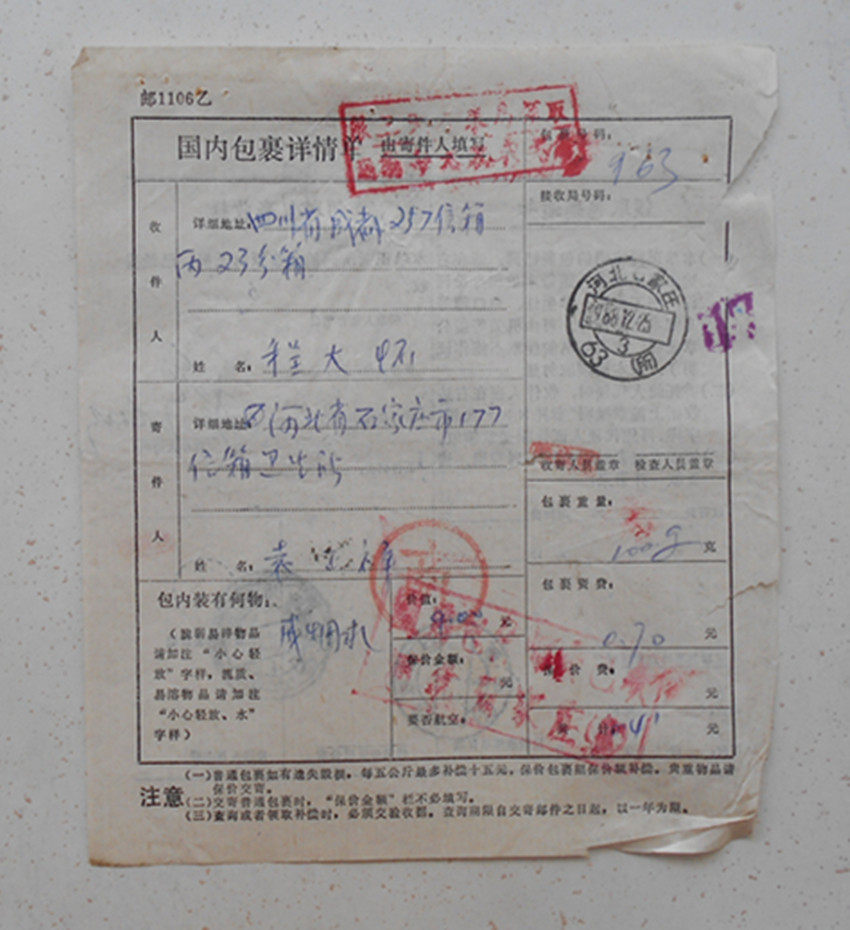 邮1106乙
国内包裹详情单 由寄件人填写
包裹号码:
963
接收局号码:
收件人
详细地址:四川省成都257信箱
丙23分箱
姓 名:程大
河北石家庄
1988.12.25
3
63 (所)
寄件人
详细地址:河北省石家庄市177
信箱卫生所
姓 名:袁
收寄人员盖章 检查人员盖章
包裹重量:
100g 克
包裹资费:
0.70 元
保价费:
元
共计:
元
包内装有何物:
(脆弱易碎物品
请加注“小心轻
放”字样,流质、
易溶物品请加注
“小心轻放、水”
字样)
戒烟水
价值:
元
保价金额:
元
要否航空:
注意
(一)普通包裹如有遗失毁损,每五公斤最多补偿十五元,保价包裹照保价额补偿。贵重物品请
保价交寄。
(二)交寄普通包裹时,“保价金额”栏不必填写。
(三)查询或者领取补偿时,必须交验收据。查询期限自交寄邮件之日起,以一年为限。